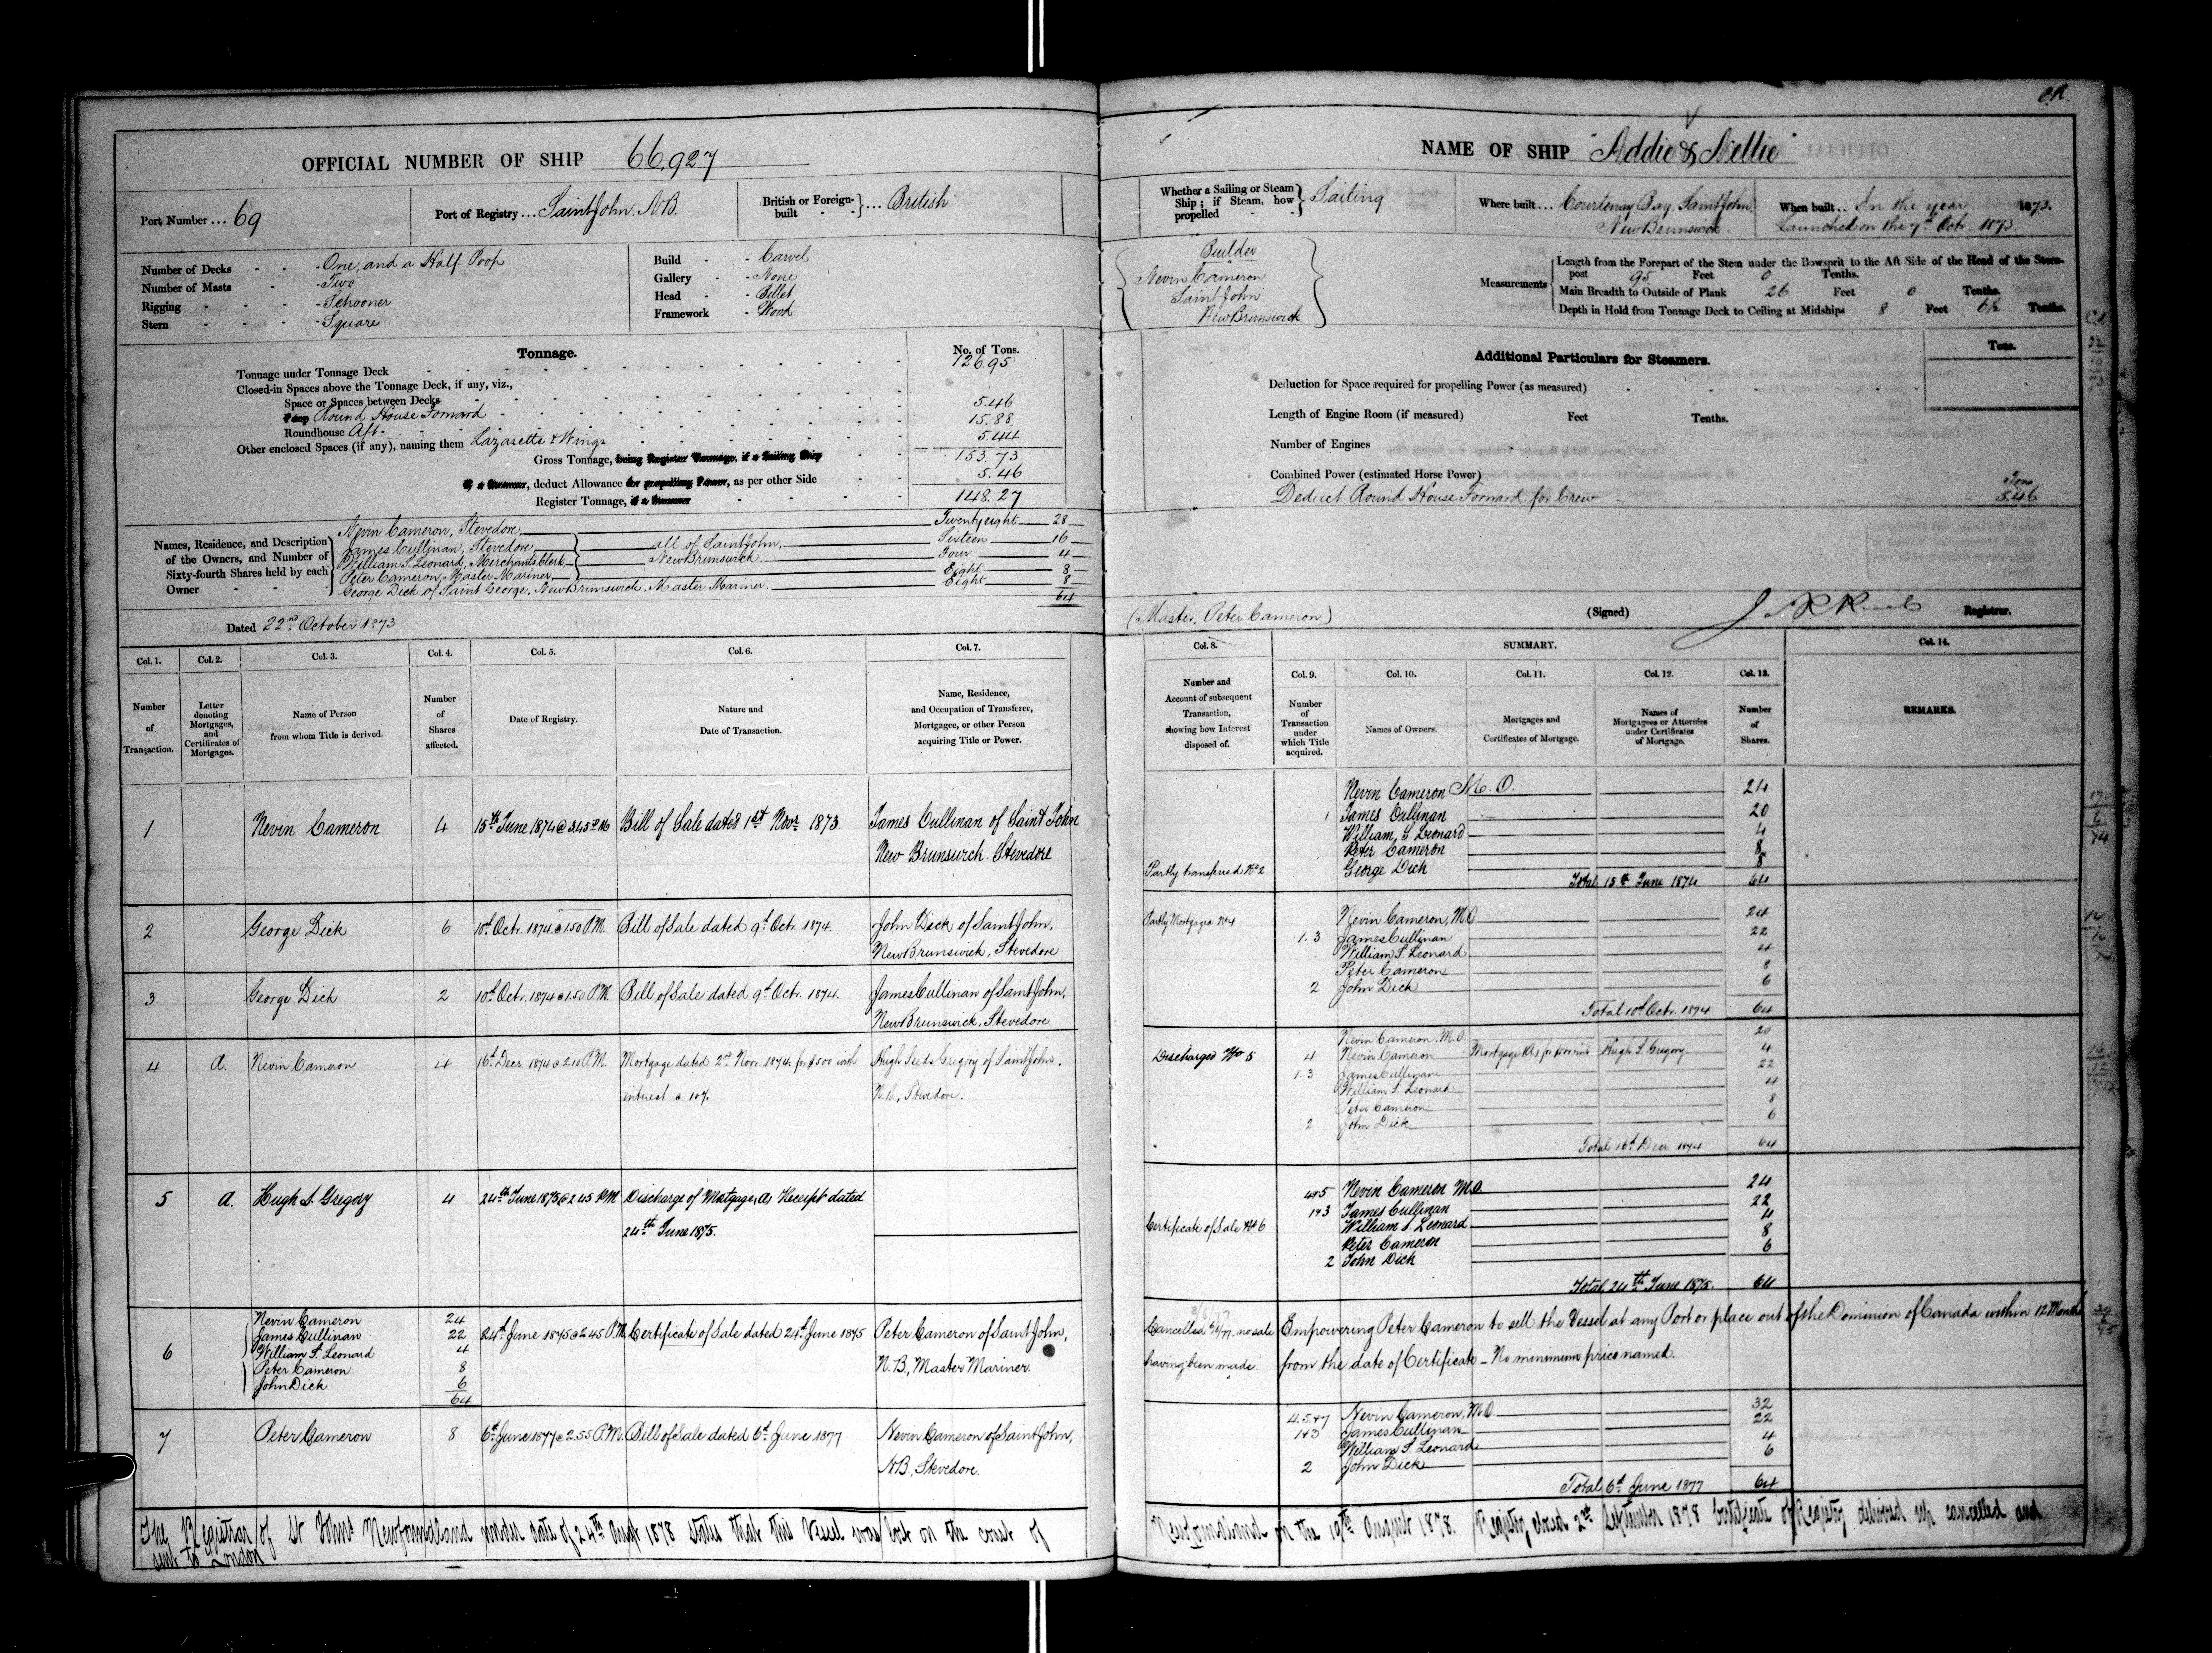 C.R.
OFFICIAL NUMBER OF SHIP 66,927
Port Number ... 69
Port of Registry ... Saint John N.B.
British or Foreign-built ... British
Number of Decks - One, and a Half Poop
Number of Masts - Two
Rigging - Schooner
Stern - Square
Build - Carvel
Gallery - None
Head - Billet
Framework - Wood
Tonnage. No. of Tons.
Tonnage under Tonnage Deck 126.95
Closed-in Spaces above the Tonnage Deck, if any, viz.,
Space or Spaces between Decks
Poop Round House Forward 5.46
Roundhouse Aft. 15.88
Other enclosed Spaces (if any), naming them Lazarette & Wings 5.44
Gross Tonnage, being Register Tonnage, if a Sailing Ship 153.73
If a Steamer, deduct Allowance for propelling Power, as per other Side 5.46
Register Tonnage, if a Steamer 148.27
Names, Residence, and Description of the Owners, and Number of Sixty-fourth Shares held by each Owner
Nevin Cameron, Stevedore Twenty eight 28
James Cullinan, Stevedore all of Saint John, Sixteen 16
William S. Leonard, Merchants Clerk New Brunswick. Four 4
Peter Cameron, Master Mariner Eight 8
George Dick of Saint George, New Brunswick, Master Mariner. Eight 8
64
Dated 22nd October 1873
NAME OF SHIP "Addie & Nellie"
Whether a Sailing or Steam Ship; if Steam, how propelled Sailing
Where built ... Courtenay Bay, Saint John, New Brunswick.
When built .. In the year 1873.
Launched on the 7th Octr. 1873.
Builder
Nevin Cameron
Saint John
New Brunswick
Measurements
Length from the Forepart of the Stem under the Bowsprit to the Aft Side of the Head of the Stern-
post 95 Feet 0 Tenths.
Main Breadth to Outside of Plank 26 Feet 0 Tenths.
Depth in Hold from Tonnage Deck to Ceiling at Midships 8 Feet 6½ Tenths.
Additional Particulars for Steamers. Tons.
Deduction for Space required for propelling Power (as measured)
Length of Engine Room (if measured) Feet Tenths.
Number of Engines
Combined Power (estimated Horse Power) Tons
Deduct Round House Forward for Crew 5.46
(Master, Peter Cameron) (Signed) Registrar.
Col. 1. Col. 2. Col. 3. Col. 4. Col. 5. Col. 6. Col. 7.
Number of Transaction.
Letter denoting Mortgages, and Certificates of Mortgages.
Name of Person from whom Title is derived.
Number of Shares affected.
Date of Registry.
Nature and Date of Transaction.
Name, Residence, and Occupation of Transferee, Mortgagee, or other Person acquiring Title or Power.
Col. 8. SUMMARY. Col. 14.
Col. 9. Col. 10. Col. 11. Col. 12. Col. 13.
Number and Account of subsequent Transaction, showing how Interest disposed of.
Number of Transaction under which Title acquired.
Names of Owners.
Mortgages and Certificates of Mortgage.
Names of Mortgagees or Attornies under Certificates of Mortgage.
Number of Shares.
REMARKS.
1 Nevin Cameron 4 15th June 1874 @ 3.45 PM Bill of Sale dated 1st Novr 1873 James Cullinan of Saint John
New Brunswick Stevedore
Nevin Cameron M.O. 24
1 James Cullinan 20
William S Leonard 4
Peter Cameron 8
Partly transferred No 2 George Dick 8
Total 15th June 1874 64
2 George Dick 6 10th Octr. 1874 @ 1.50 P.M. Bill of Sale dated 9th Octr. 1874. John Dick of Saint John,
New Brunswick, Stevedore
3 George Dick 2 10th Octr. 1874 @ 1.50 P.M. Bill of Sale dated 9th Octr. 1874. James Cullinan of Saint John,
New Brunswick, Stevedore
Partly Mortgaged No 4 Nevin Cameron, M.O 24
1.3 James Cullinan 22
William S. Leonard 4
Peter Cameron 8
2 John Dick 6
Total 10th Octr. 1874 64
4 A. Nevin Cameron 4 16th Decr 1874 @ 2.10 P.M. Mortgage dated 2nd Novr. 1874 for $500 with Hugh Seeds Gregory of Saint John,
interest @ 10% N.B., Stevedore.
Nevin Cameron. M.O. 20
Discharged No 5 4 Nevin Cameron Mortgage A for $500 Hugh S. Gregory 4
1.3 James Cullinan 22
William S. Leonard 4
Peter Cameron 8
2 John Dick 6
Total 16th Decr 1874 64
5 A. Hugh S. Gregory 4 24th June 1875 @ 2.45 P.M Discharge of Mortgage A, Receipt dated
24th June 1875.
4&5 Nevin Cameron M.O. 24
1&3 James Cullinan 22
Certificate of Sale No 6 William S. Leonard 4
Peter Cameron 8
2 John Dick 6
Total 24th June 1875. 64
6 Nevin Cameron 24
James Cullinan 22
William S. Leonard 4
Peter Cameron 8
John Dick 6
64
24th June 1875 @ 2.45 P.M. Certificate of Sale dated 24th June 1875 Peter Cameron of Saint John,
N.B., Master Mariner.
Cancelled 6/6/77. no sale Empowering Peter Cameron to sell the Vessel at any Port or place out of the Dominion of Canada within 12 Months
having been made. from the date of Certificate - No minimum price named.
7 Peter Cameron 8 6th June 1877 @ 2.55 P.M. Bill of Sale dated 6th June 1877 Nevin Cameron of Saint John,
N.B., Stevedore.
4.5.&7 Nevin Cameron, M.O. 32
1&3 James Cullinan 22
William S. Leonard 4
2 John Dick 6
Total 6th June 1877 64
The Registrar of St Johns Newfoundland under date of 24th Augt 1878 states that this Vessel was lost on the coast of
Newfoundland on the 19th August 1878. Registry closed 2nd September 1878 Certificate of Registry delivered up cancelled and
sent to London